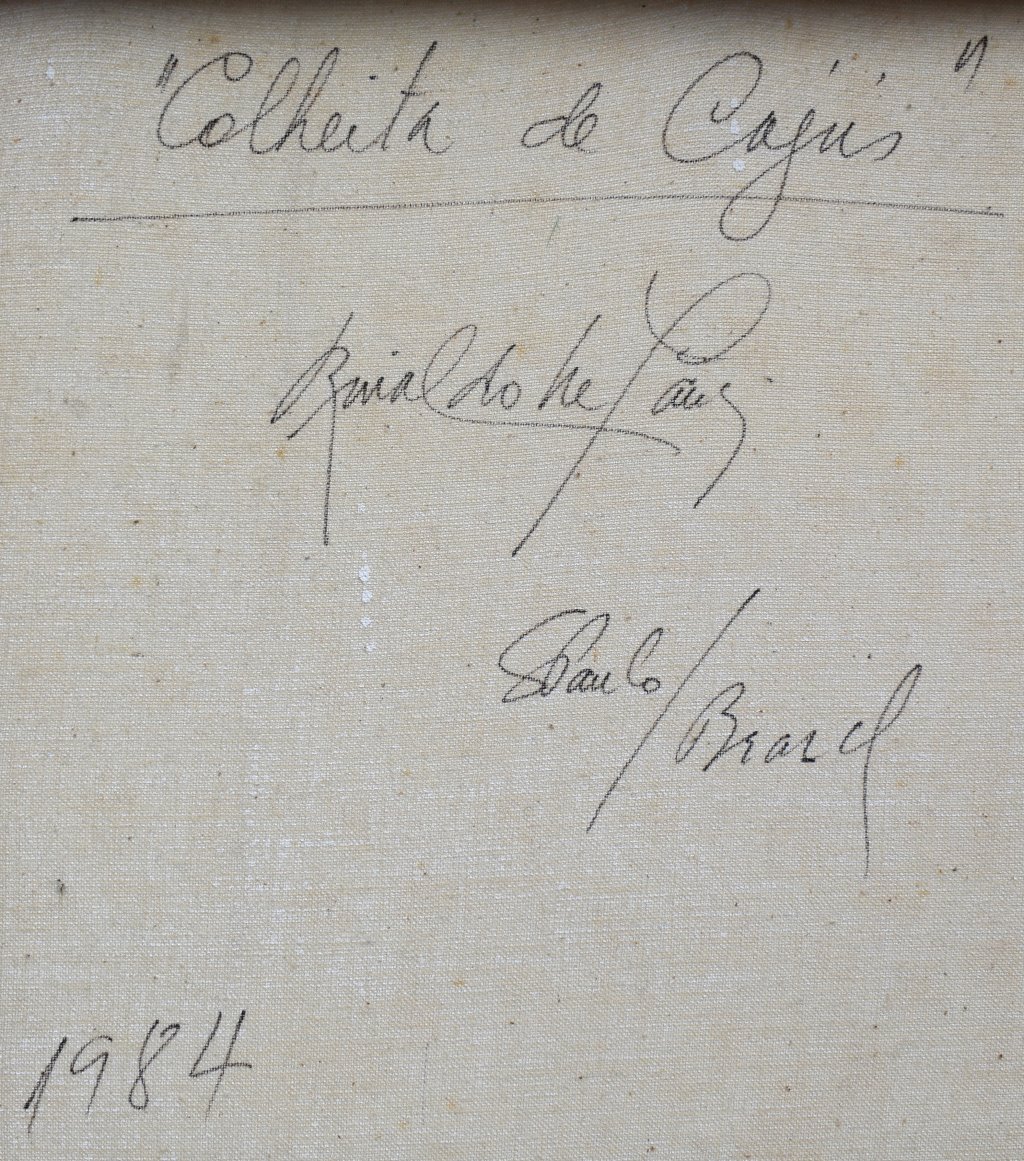 "Colheita de Cajús"
Rinaldo
S Paulo / Brazil
1984